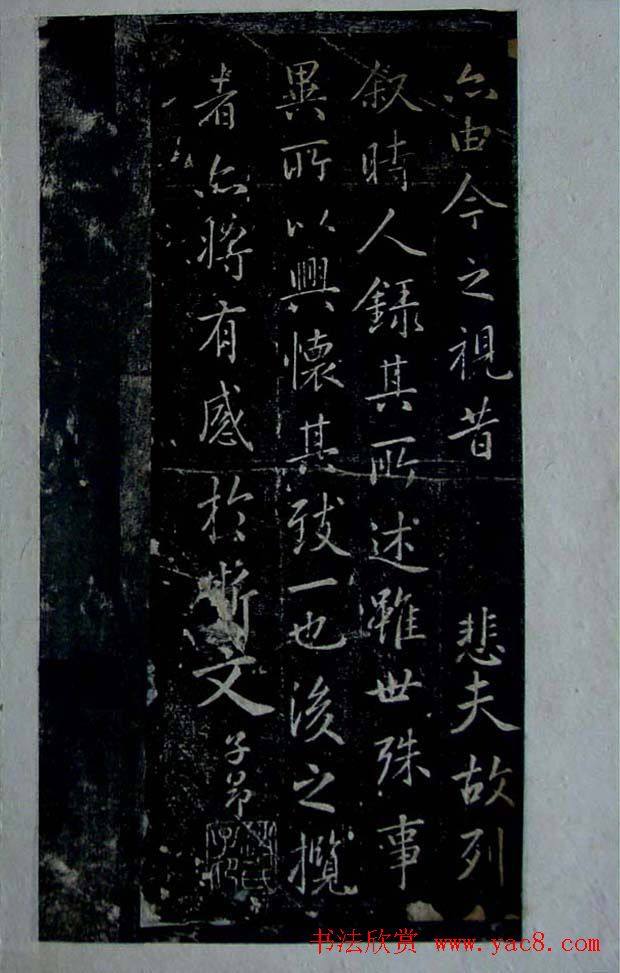 亦由今之視昔 悲夫故列
叙時人錄其所述雖世殊事
異所以興懷其致一也後之攬
者亦將有感於斯文
子昂
書法欣赏 www.yac8.com